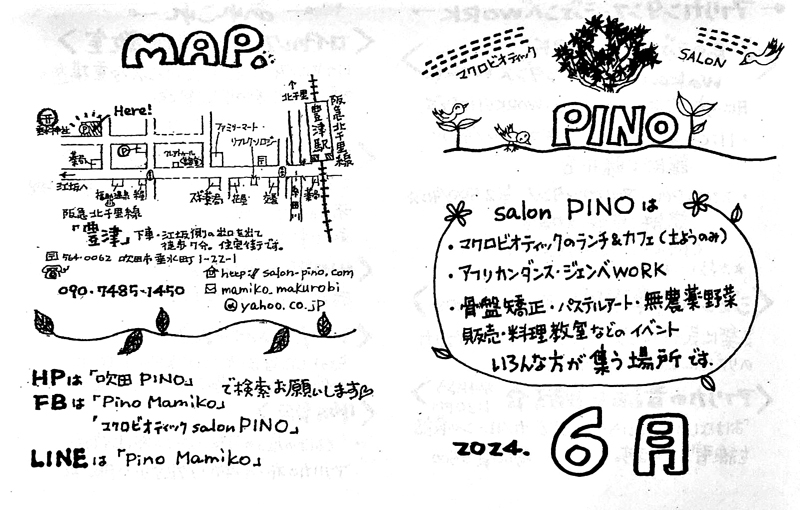 MAP.
Here!
北千里
阪急北千里線
豊津駅
ファミリーマート
リフレクソロジー
江坂へ
阪急北千里線
「豊津」下車・江坂側の出口を出て
徒歩7分。住宅街です。
〒564-0062 吹田市垂水町1-22-1
☎ 090-7485-1450
http://salon-pino.com
mamiko_makurobi
@yahoo.co.jp
HPは「吹田 PINO」で検索お願いします
FBは「Pino Mamiko」
「マクロビオティック salon PINO」
LINEは「Pino Mamiko」
マクロビオティック SALON
PINO
salon PINOは
・マクロビオティックのランチ&カフェ(土ようのみ)
・アフリカンダンス・ジェンベWORK
・骨盤矯正・パステルアート・無農薬野菜
販売・料理教室などのイベント
いろんな方が集う場所です.
2024. 6月